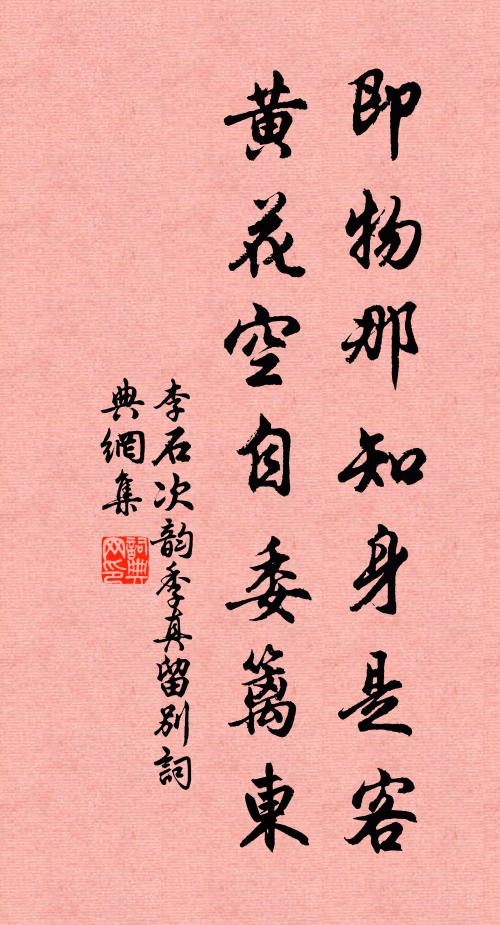 即物那知身是客
黄花空自委籬東
李石次韵季真留别詞
典網集
詞典
网印